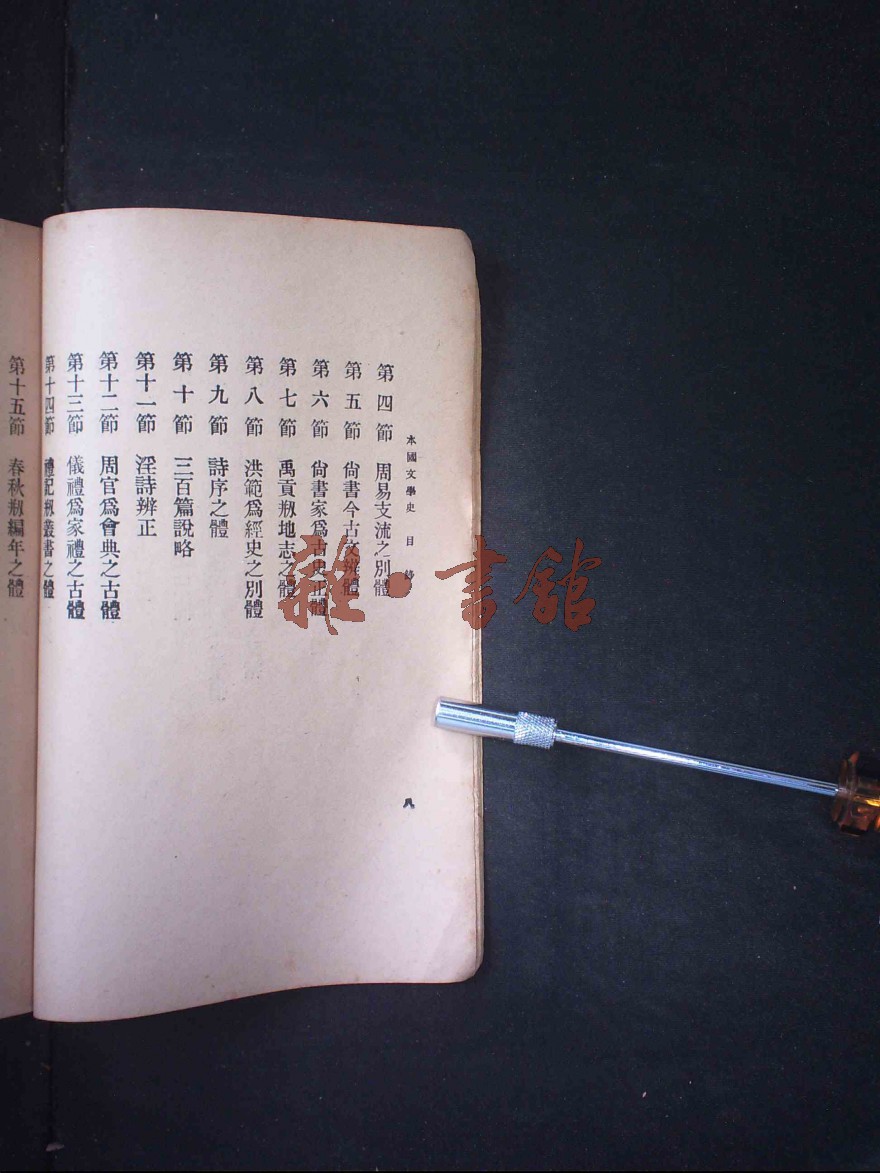 本國文學史 目錄
第四節 周易支流之別體
第五節 尙書今古文辨體
第六節 尙書家爲古史正體
第七節 禹貢剏地志之體
第八節 洪範爲經史之別體
第九節 詩序之體
第十節 三百篇說略
第十一節 淫詩辨正
第十二節 周官爲會典之古體
第十三節 儀禮爲家禮之古體
第十四節 禮記剏叢書之體
八
第十五節 春秋剏編年之體
雜·書館